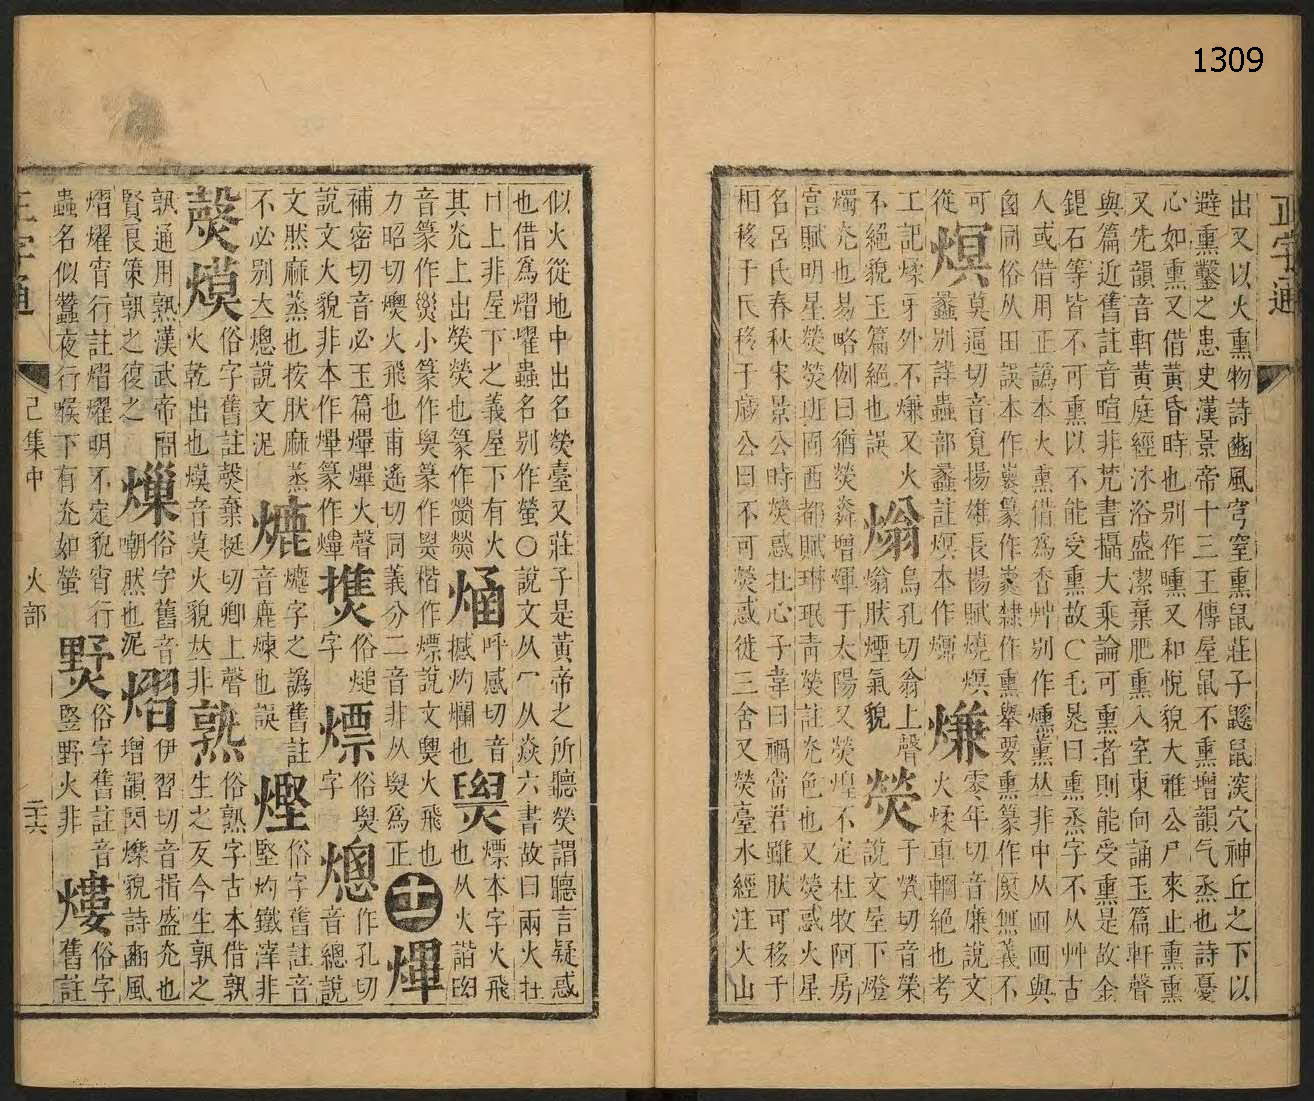 1309
正字通
出又以火熏物詩豳風穹窒熏鼠莊子鼷鼠深穴神丘之下以
避熏鑿之患史漢景帝十三王傳屋鼠不熏增韻气烝也詩憂
心如熏又借黃昏時也别作曛又和悅貌大雅公尸來止熏熏
又先韻音軒黃庭經沐浴盛潔棄肥熏入室東向誦玉篇軒聲
與篇近舊註音暄非梵書攝大乘論可熏者則能受熏是故金
鋥石等皆不可熏以不能受熏故〇毛晃曰熏烝字不从艸古
人或借用正譌本火熏借爲香艸别作燻薰𠀤非中从囪囪與
囪同俗从田誤本作熏篆作熏隸作熏舉要熏篆作熏無義不
可從 熐 莫逼切音覓揚雄長揚賦燒熐蠡别詳蟲部蠡註熐本作㷵 熑 零年切音廉說文火煣車輞絶也考
工記煣牙外不熑又火不絕貌玉篇絕也誤 㷨 烏孔切翁上聲㷨㶽煙氣貌 熒 于煢切音榮說文屋下燈
燭光也易略例曰猶熒燐增煇于太陽又熒煌不定杜牧阿房
宮賦明星熒熒班固西都賦琳珉青熒註光色也又熒惑火星
名呂氏春秋宋景公時熒惑杜心子韋曰禍當君雖然可移于
相移于民移于歲公曰不可熒惑徙三舍又熒臺水經注火山
似火從地中出名熒臺又莊子是黃帝之所聽熒謂聽言疑惑
也借爲熠燿蟲名别作螢〇說文从冖从焱六書故曰兩火在
冂上非屋下之義屋下有火其光上出熒熒也篆作熒𤇾 㷁 呼感切音撼灼爛也 𤐫 熛本字火飛也从火䛐𦥑
音篆作𤐫小篆作𤐫篆作𤐫楷作熛說文𤐫火飛也
力昭切㷸火飛也甫遙切同義分二音非从𤐫爲正 十一 熚
補密切音必玉篇熚㷸火聲說文火貌非本作㷸篆作㷸 㩗 俗㷟字 熛 俗𤐫字 熜 作孔切音總說
文然麻蒸也按肰麻蒸不必别大熜說文泥 熝 㷶字之譌舊註音麤煉也誤 熞 俗字舊註音堅灼鐵滓非
漀熯 俗字舊註漀棄挺切卿上聲火乾出也熯音莫火貌𠀤非 熟 俗熟字古本借孰生之反今生孰之
孰通用熟漢武帝問賢良策孰之復之 㷹 俗字舊音嘲肰也泥 熠 伊習切音揖盛光也增韻閃爍貌詩豳風
熠燿宵行註熠燿明不定貌宵行蟲名似蠶夜行喉下有光如螢 墅 俗字舊註音豎野火非 熡 俗字舊註
正字通
巳集中 火部 二十六